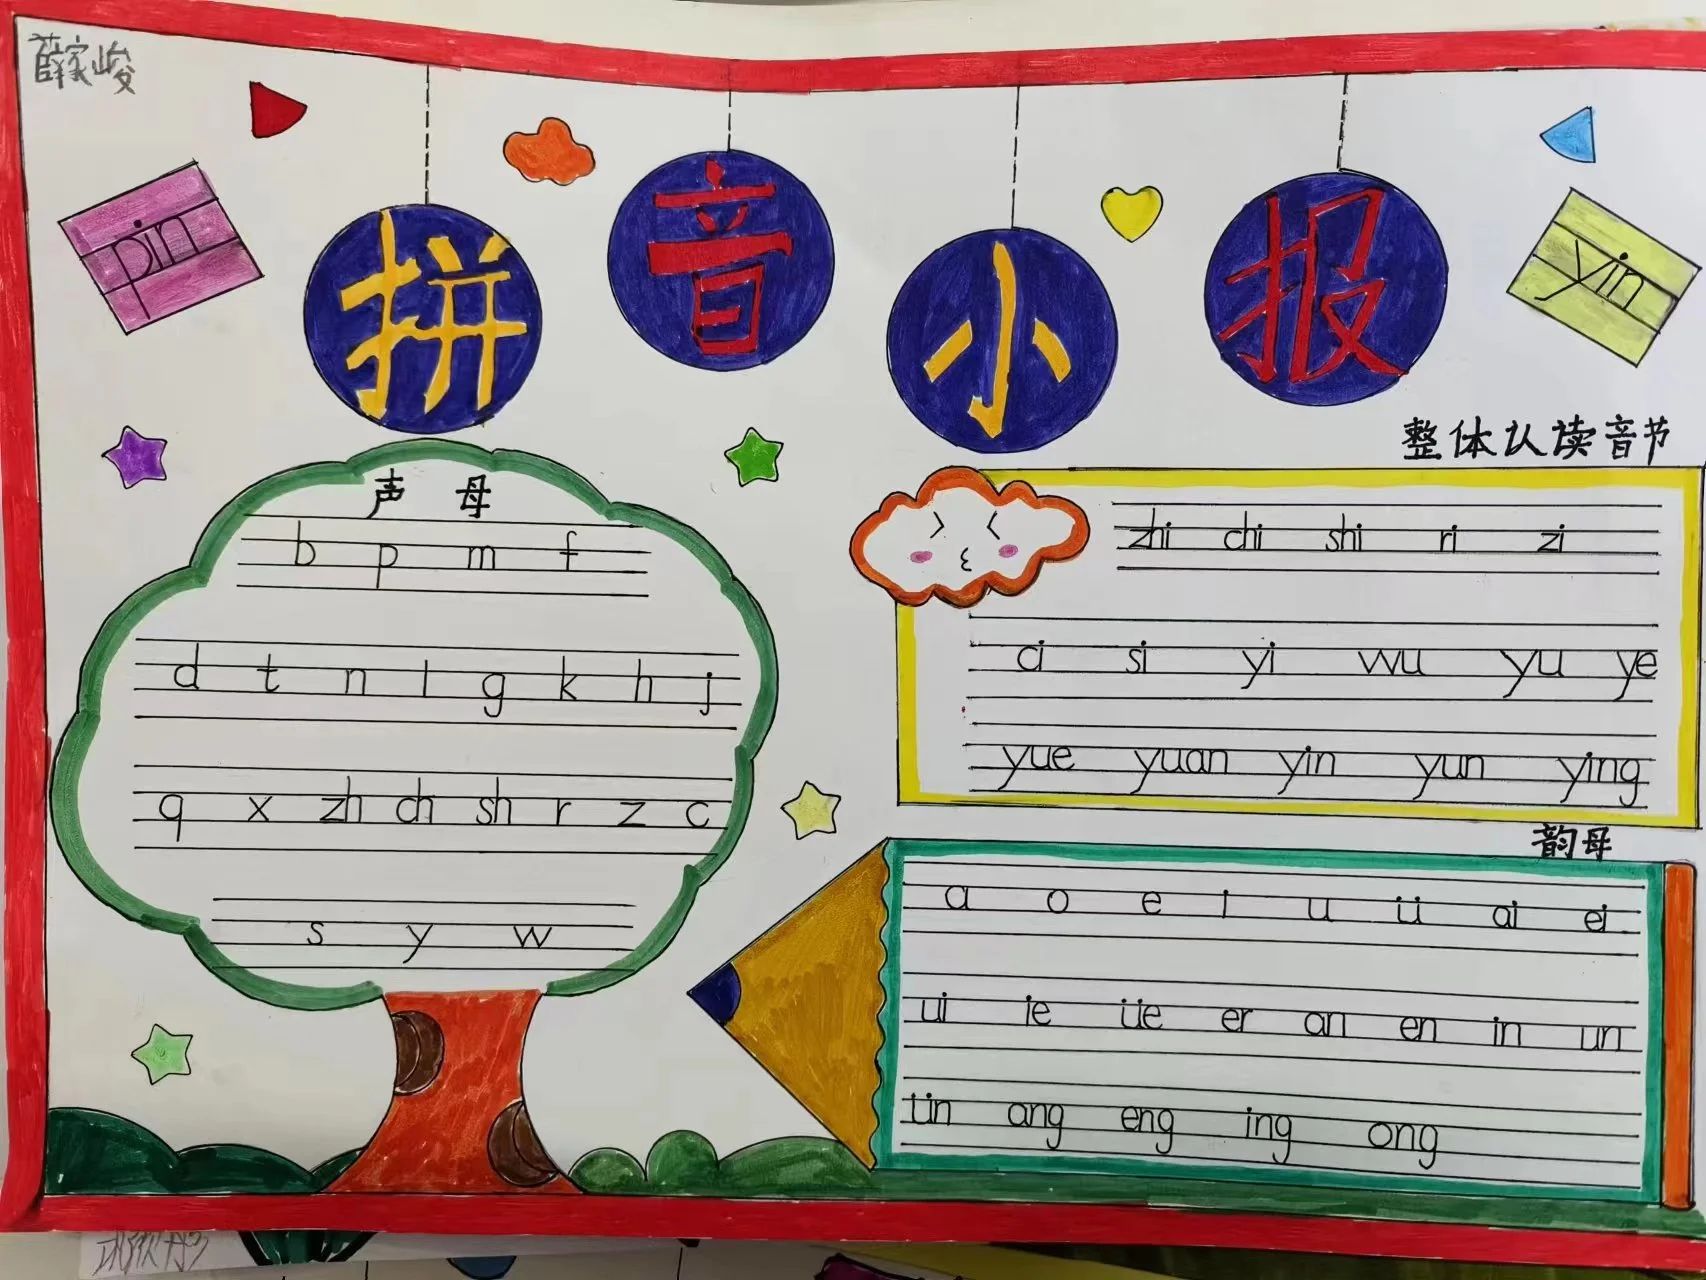 薛家峻
pin
拼音小报
yin
声母
b p m f
d t n l g k h j
q x zh ch sh r z c
s y w
整体认读音节
zhi chi shi ri zi
ci si yi wu yu ye
yue yuan yin yun ying
韵母
a o e i u ü ai ei
ui ie üe er an en in un
ün ang eng ing ong